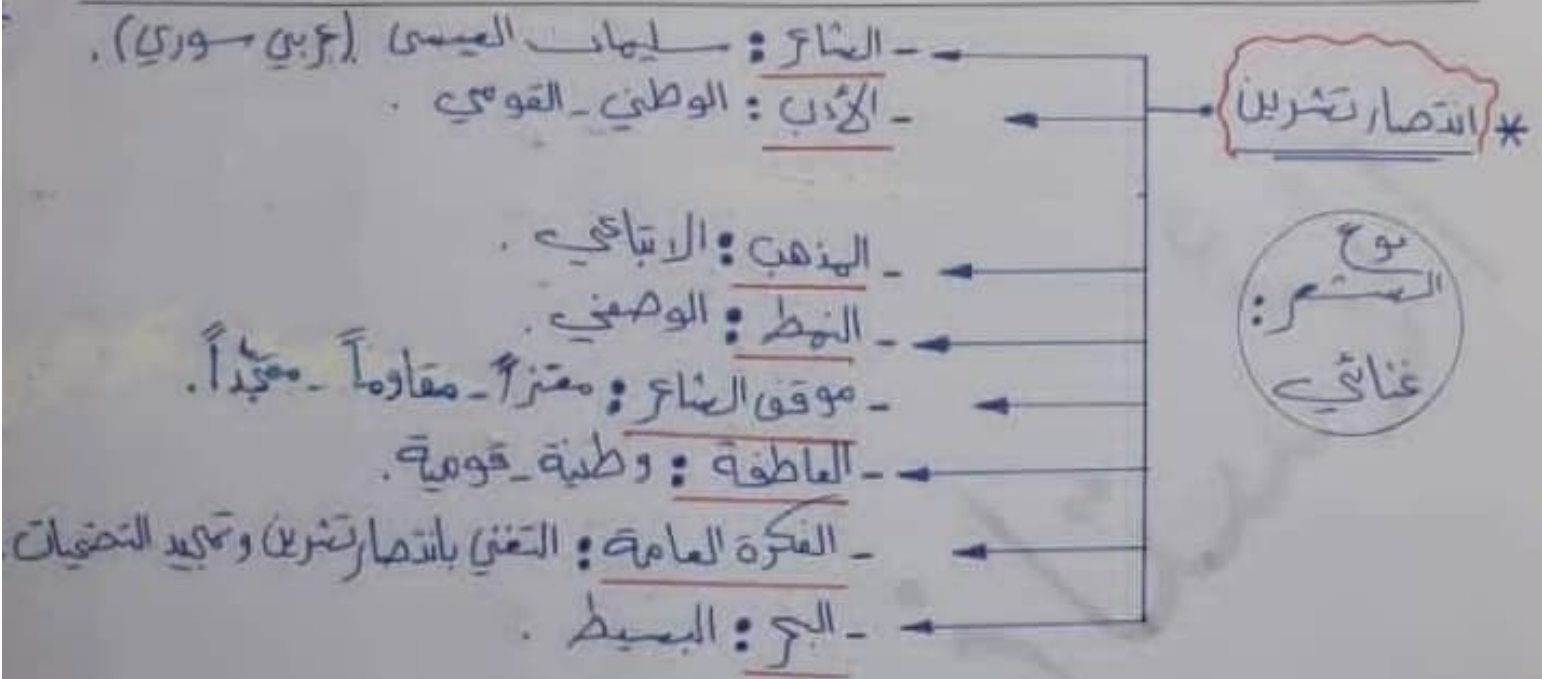 * انتصار تشرين
نوع
الشعر:
غنائي
- الشاعر: سليمان العيسى (عربي سوري).
- الأدب: الوطني - القومي.
- المذهب: الاتباعي.
- النمط: الوصفي.
- موقف الشاعر: معتزاً - مقاوماً - ممجّداً.
- العاطفة: وطنية - قومية.
- الفكرة العامة: التغني بانتصار تشرين وتمجيد التضحيات.
- البحر: البسيط.